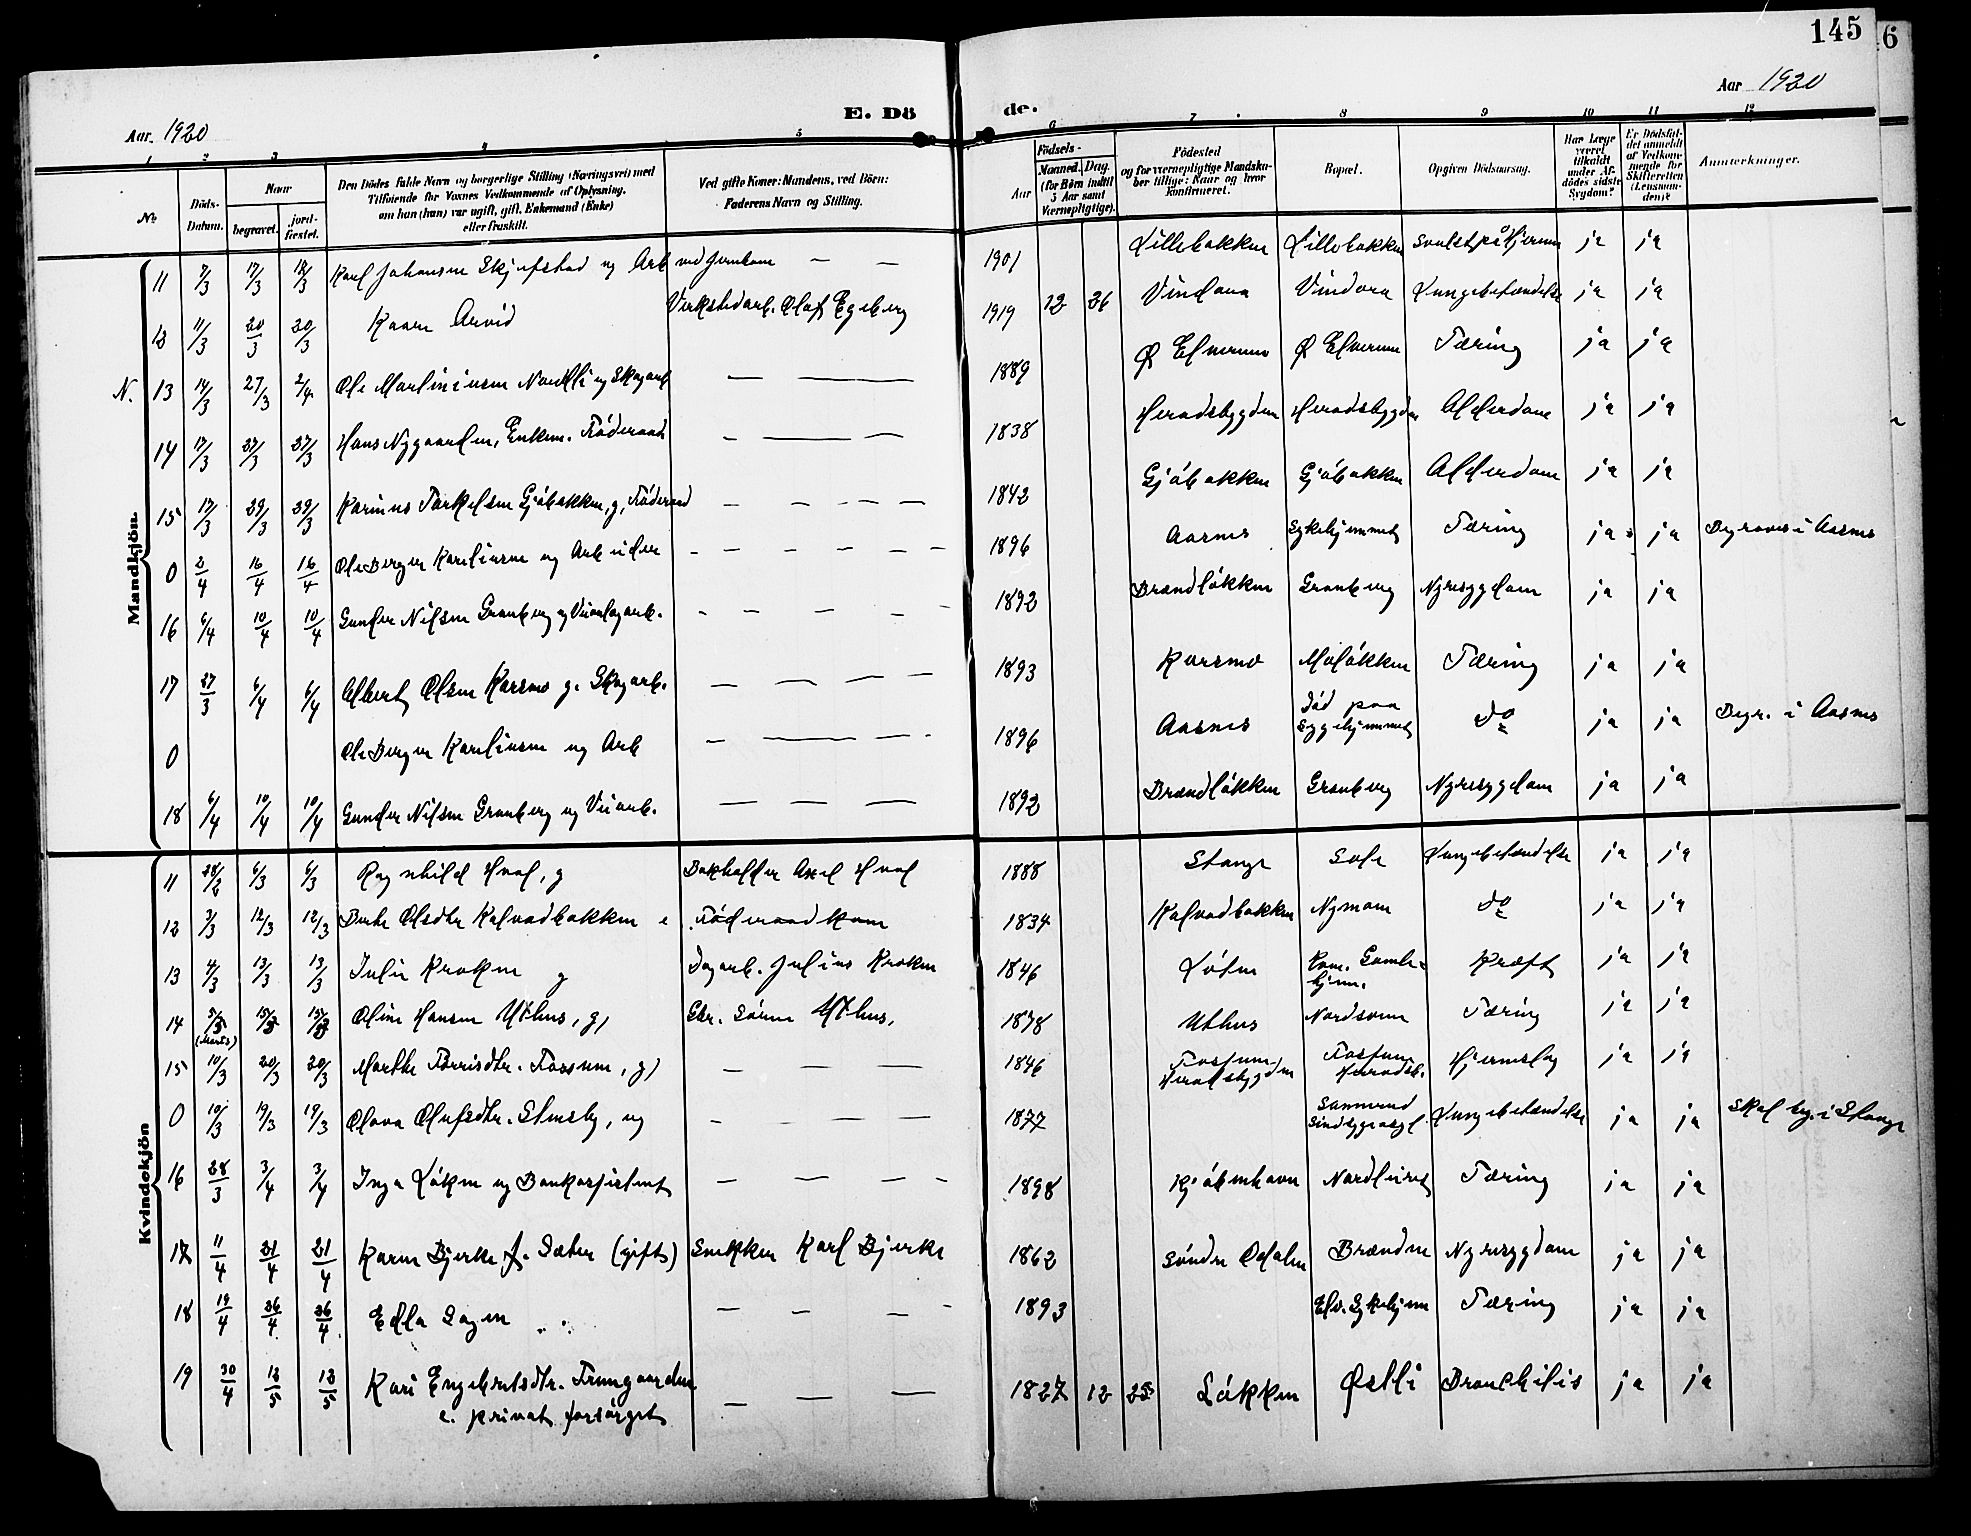 145
6
Aar 1920
E. Dö
de.
Aar 1920
1 2 3 4 5 6 7 8 9 10 11 12
No
Döds-
Datum.
Naar
begravet.
jord-
fæstet.
Den Dödes fulde Navn og borgerlige Stilling (Næringsvei) med
Tilföiende for Voxnes Vedkommende af Oplysning,
om han (hun) var ugift, gift, Enkemand (Enke)
eller fraskilt.
Ved gifte Koner: Mandens, ved Börn:
Faderens Navn og Stilling.
Aar
Födsels-
Maaned. Dag.
(for Börn indtil
5 Aar samt
Værnepligtige).
Födested
og for værnepligtige Mandska-
ber tillige: Naar og hvor
konfirmeret.
Bopæl.
Opgiven Dödsaarsag.
Har Læge
været
tilkaldt
under Af-
dödes sidste
Sygdom?
Er Dödsfal-
det anmeldt
af Vedkom-
mende for
Skifteretten
(Lensman-
den)?
Anmærkninger.
Mandkjön.
11 7/3 17/3 18/3 Karl Johansen Skjefstad ug Arb ved Jernbane — — 1901 Lillebakken Lillebakken Svulst på Hjernen ja ja
12 11/3 20/3 20/3 Kaare Arvid Verkstedarb. Olaf Egeberg 1919 12 26 Vindora Vindora Lungebetændelse ja ja
N. 13 14/3 27/3 2/4 Ole Martiniusen ug Skogarb — — 1889 Ø Elverum Ø Elverum Tæring ja ja
14 17/3 27/3 27/3 Hans Nygaarden, Enkem. Föderaad — — — 1838 Heradsbygden Heradsbygden Alderdom ja ja
15 17/3 29/3 29/3 Karinus Torkelsen Gjöbakken, g, Föderaad — — — — 1842 Gjöbakken Gjöbakken Alderdom ja ja
0 2/4 16/4 16/4 Ole Berger Karelinsen ug Arbeider - — — — — — 1896 Aasnes Sykehjemmet Tæring ja ja Begraves i Aasnes
16 6/4 10/4 10/4 Gunder Nilsen Granberg ug Veianlagarb. - - — — - 1892 Brændlökken Granberg Nyresygdom ja ja
17 27/3 6/4 6/4 Albert Olsen Korsmo g. Skogarb. — — — — 1893 Korsmo Moløkken Tæring ja ja
0 Ole Berger Karelinsen ug Arb — — — - 1896 Aasnes Död paa Sygehjemmet do ja ja Begr. i Aasnes
18 6/4 10/4 10/4 Gunder Nilsen Granberg ug Veiarb. — — — 1892 Brændløkken Granberg Nyresygdom ja ja
Kvindekjön
11 28/2 6/3 6/3 Ragnhild Hval, g Bokholder Axel Hval 1888 Stange Sole Lungebetændelse ja ja
12 3/3 12/3 12/3 Berte Olsdtr Kalvadbakken e Föderaadkone 1834 Kalvadbakken Nymoen do ja ja
13 4/3 13/3 13/3 Julie Kroken g Dagarb. Julius Kroken 1846 Löten Kom. Gamle- hjem. Kræft ja ja
14 5/3 (Marts) 15/3 15/3 Oline Hansen Uthus, g, Gbr. Sören Uthus, 1878 Uthus Nordsonn Tæring ja ja
15 10/3 20/3 20/3 Marthe Torrisdtr. Fossum, g, — — — 1846 Fossum Heradsbygden Fossum Heradsb. Hjerneslag ja ja
0 10/3 19/3 19/3 Olava Olufsdtr. Stensby, ug - — — — 1877 Sannerud Sindsygeasyl. Lungebetændelse ja ja Skal beg. i Stange
16 28/3 3/4 3/4 Inga Løken ug Bankassistent — — — - 1898 Kjöbenhavn Nordlund Tæring ja ja
17 11/4 21/4 21/4 Karen Bjerke f. Sæter (gift) Snekker Karl Bjerke 1862 Söndre Odalen Brænden Nyresygdom ja ja
18 19/4 26/4 26/4 Edla Sagen — — — - 1893 Elv. Sykehjem Tæring ja ja
19 30/4 12/5 12/5 Kari Engebretsdtr. — — — 1827 12 25 Løkken Østli Bronchitis ja ja
e. privat forsörget